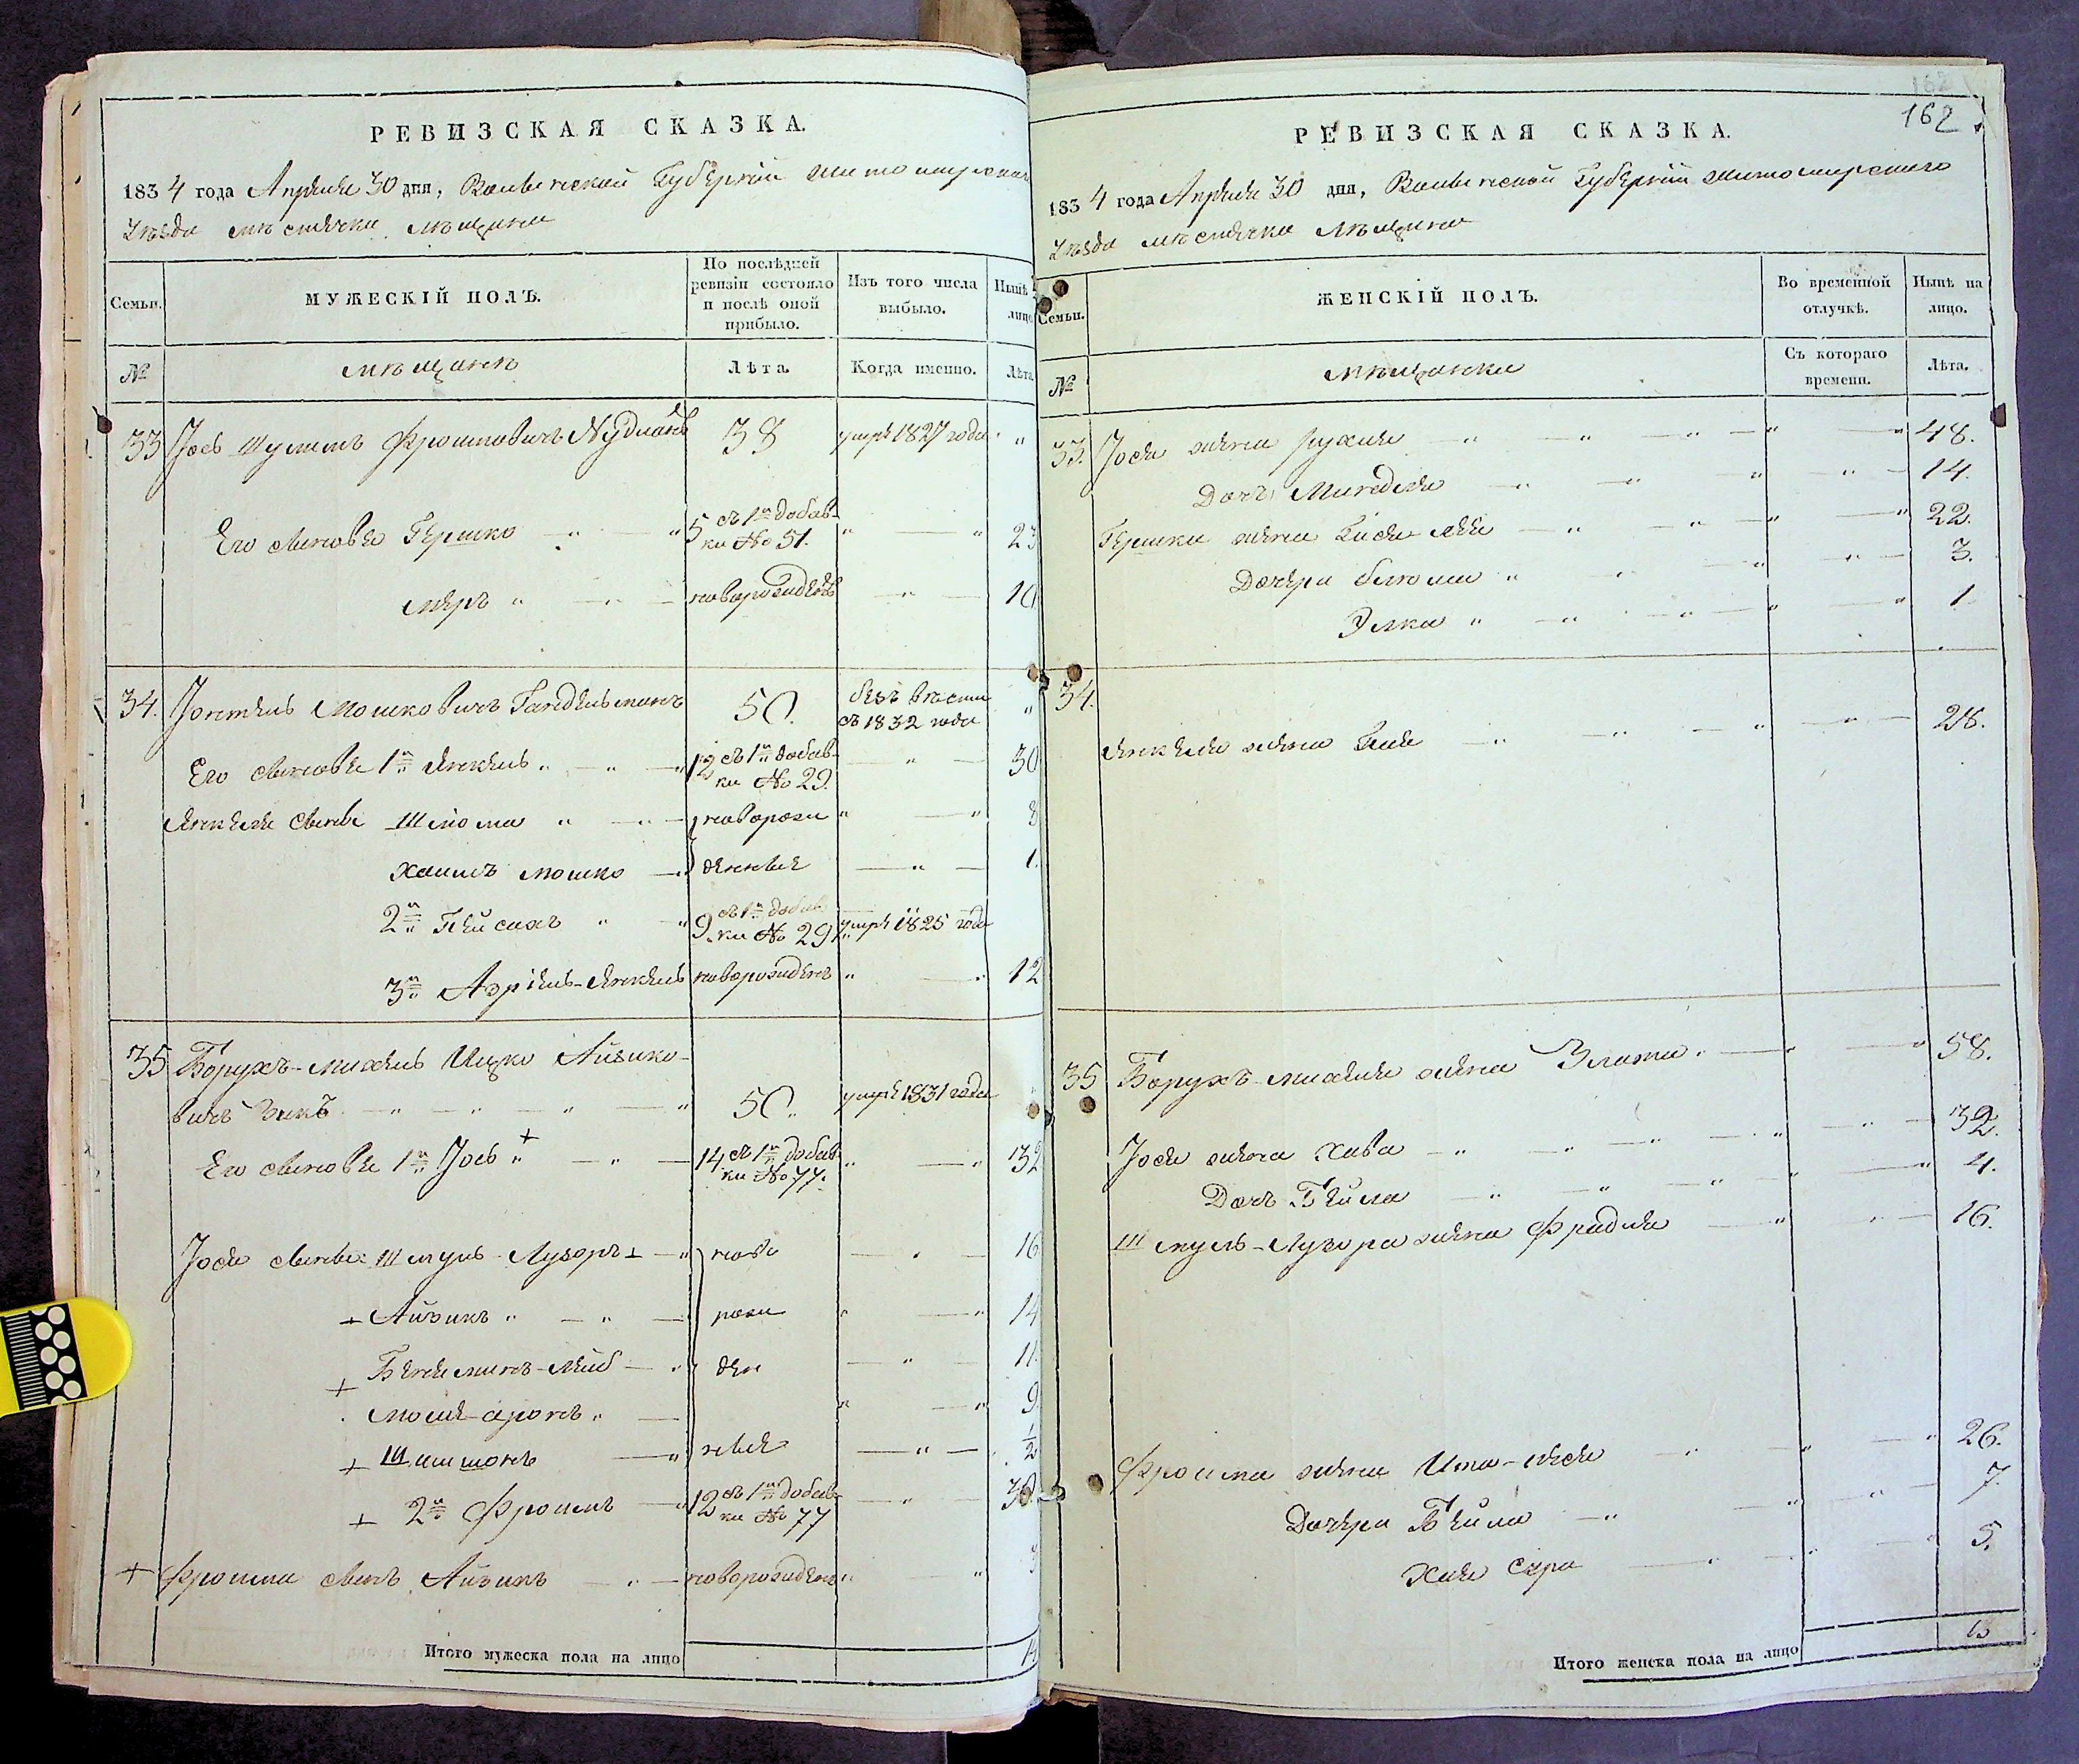 РЕВИЗСКАЯ СКАЗКА.
1834 года Апреля 30 дня, Волынской Губернии Житомирскаго
Уѣзда мѣстечка
Семьи.
МУЖЕСКІЙ ПОЛЪ.
По послѣдней ревизіи состояло и послѣ оной прибыло.
Изъ того числа выбыло.
Нынѣ лицо
№
мѣщанъ
Лѣта.
Когда именно.
Лѣта
33 Іось Шулимъ Фроимовичъ 38 умре 1827 года
Его сыновья Гершко 5 съ 1й добавки № 51. 23
Меръ новорожденъ 10
34. Іонтель Мошковичъ Гандельманъ 50. безъ вѣсти съ 1832 года
Его сыновья 1й Янкель 12 съ 1й добавки № 29. 30
Янкеля сынове Шлiома новорож 8
Хаимъ Мошко денные 1.
2й Гейсихъ 9 съ 1й добавки № 29 умре 1825 года
3й Азріель-Янкель новорожденъ 12
35 Борухъ-Михель Ицко Айзико-
вичъ 50 умре 1831 года
Его сыновья 1й Іось + 14 съ 1й добавки № 77. 32
Іося сынове Шмуль-Лузоръ + ново 16
+ Айзикъ рож 14
+ Беніаминъ-Лейб ден 11
Мошя-Аронъ 9
+ Шимшонъ ные ½
+ 2й Фроимъ 12 съ 1й добавки № 77 30
+ Фроима сынъ Айзикъ новорожденъ 3
Итого мужеска пола на лицо 14
162
РЕВИЗСКАЯ СКАЗКА.
1834 года Апреля 30 дня, Волынской Губернии Житомирскаго
Уѣзда мѣстечка
Семьи.
ЖЕНСКІЙ ПОЛЪ.
Во временной отлучкѣ.
Нынѣ на лицо.
№
мѣщанки
Съ котораго времени.
Лѣта.
33. Іося жена Рухля 48.
Дочь Миндля 14.
Гершка жена Бася Лея 22.
Дочери Блюма 3.
Элка 1
34.
Янкеля жена Бася 28.
35 Борухъ-Михеля жена Злата 58.
Іося жена Хава 32.
Дочь Бейла 4.
Шмуль-Лузора жена Фрадля 16.
Фроима жена Ита-Нися 26.
Дочери Бейла 7.
Хая Сура 5.
Итого женска пола на лицо 13